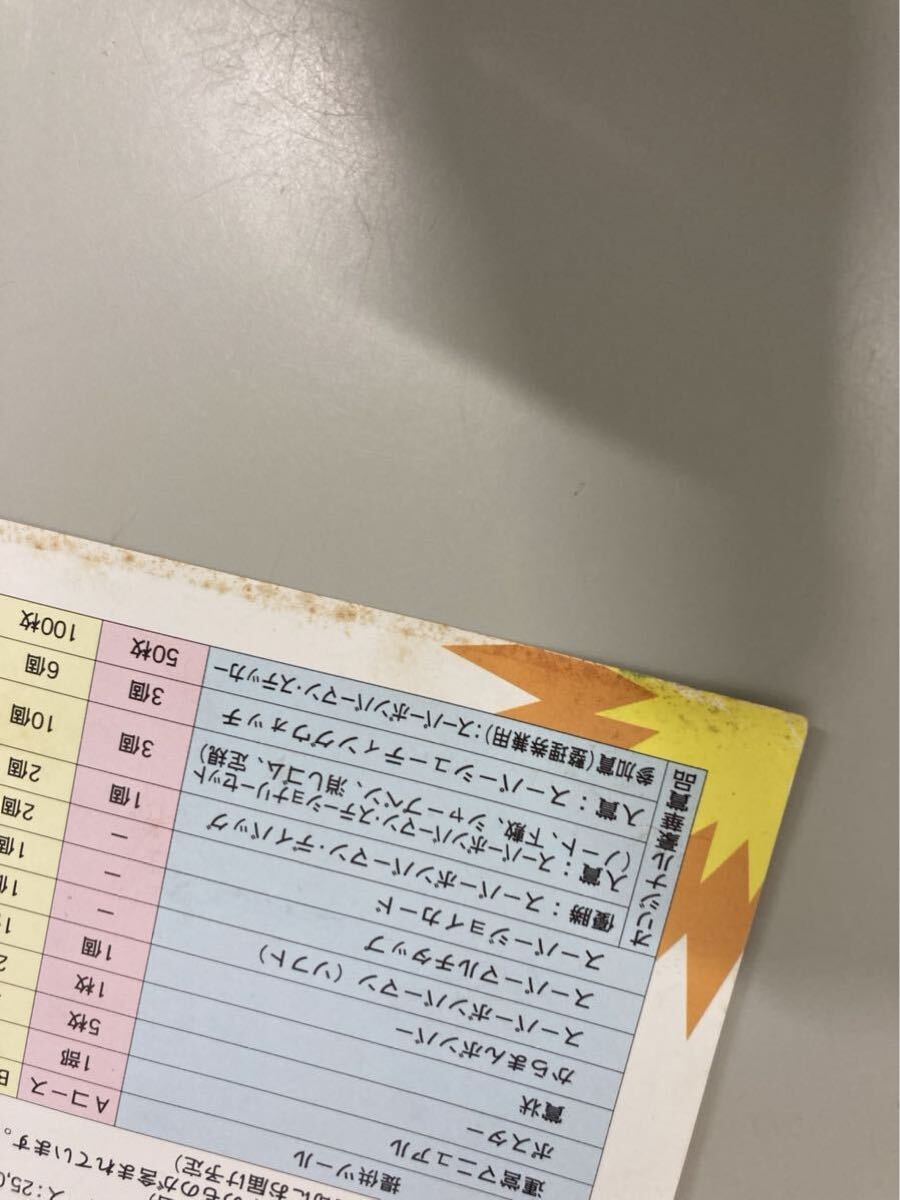 ス：25,0
旬にお届け予定）
のものが含まれています。
提供ツール Aコース B
運営マニュアル 1部
ポスター 5枚
賞状 1枚
からまんボンバー 1個
スーパーボンバーマン（ソフト） － 1個
スーパーマルチタップ － 1個
スーパージョイカード － 2個
オリジナル豪華賞品
優勝：スーパーボンバーマン・デイバッグ 1個 2個
入賞：スーパーボンバーマン・ステーショナリーセット
（ノート、下敷、シャープペン、消しゴム、定規） 3個 10個
入賞：スーパーシューティングウォッチ 3個 6個
参加賞（整理券兼用）：スーパーボンバーマン・ステッカー 50枚 100枚